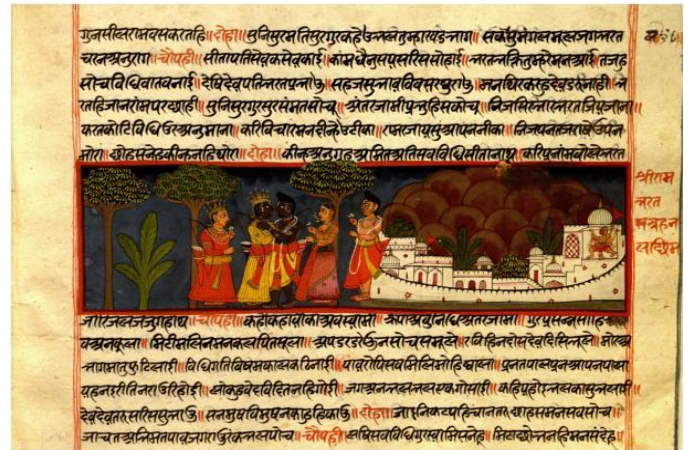 गुनसीलरामबसकरतहि॥दोहा॥ सुनिसुरमतिसुरगुरकहेउभलतुम्हारबडभाग॥ सकलसुमंगलमूलजगभरत
चरनअनुराग॥ चौपही॥ सीतापतिसेवकसेवकाई॥ कामधेनुसयसरिससोहाई॥ भरतभगतितुम्हरेमनआई॥तजहु
सोचबिधिबातबनाई॥ देषिदेवपतिभरतप्रभाउ॥ सहजसुभावबिबसरघुराउ॥ मनथिरकरहुदेवडरनाही॥ भ
रतहिजानिरामपरछाही॥ सुनिसुरगुरसुरसंमतसोच॥ अंतरजामीप्रभुहिसकोच॥ निजसिरभारभरतजियजाना॥
करतकोटिबिधिउरअनुमाना॥ करिबिचारमनदीन्हीठीका॥ रामरजायसुआपननीका॥ निजपनतजिराषेउपन
मोरा॥ छोहसनेहकीन्हनहिथोरा॥ दोहा॥ कीन्हअनुग्रहअमितअतिसबबिधिसीतानाथ॥ करिप्रनामबोलेभरत
श्रीराम
भरत
सत्रुहन
जोरिजलजजुगहाथ॥ चौपही॥ कहौकहावौकाअबस्वामी॥ कृपाअंबुनिधिअंतरजामी॥ गुरप्रसन्नसाहि
बअनुकूला॥ मिटीमलिनमनकलपितसूला॥ अपडरडरेउनसोचसमूले॥ रबिहिनदोषदेवदिसिभूले॥ मोरअ
भागमातुकुटिलाई॥ बिधिगतिबिषमकालकठिनाई॥ पाउरोपिसबमिलिमोहिघाला॥ प्रनतपालपनआपनपाला॥
यहनइरीतिनराउरिहोई॥ लोकहुबेदबिदितनहिगोई॥ जगअनभलभलएकगोसाई॥ कहिअहोइभलकासुभलाई॥
देवदेवतरुसरिससुभाउ॥ सनमुषबिमुषनकाहुहिकाउ॥ दोहा॥ जाइनिकटपहिचानतरुछाहसमनसबसोच॥
जाचतअभिमतपावजगराउरंकभलपोच॥ चौपही॥ लषिसबबिधिगुरस्वामिसनेह॥ मिटेउछोभनहिमनसंदेह॥